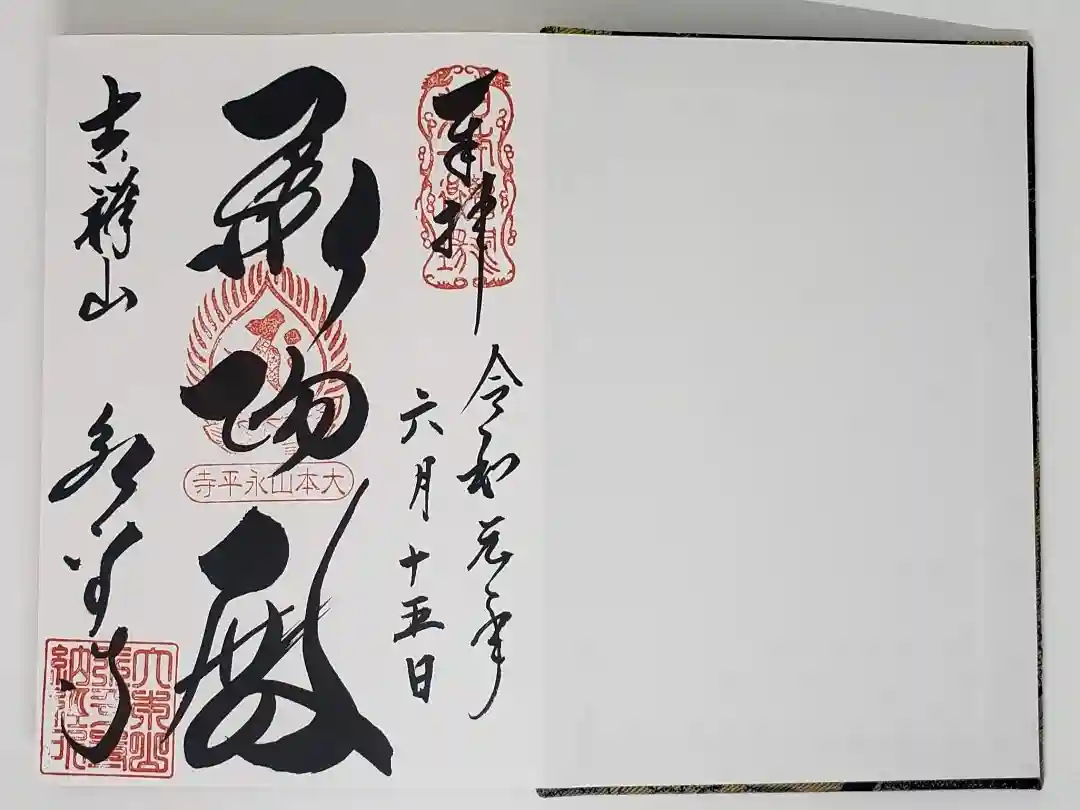 奉拝
令和元年
六月十五日
承陽殿
大本山永平寺
吉祥山
永平寺